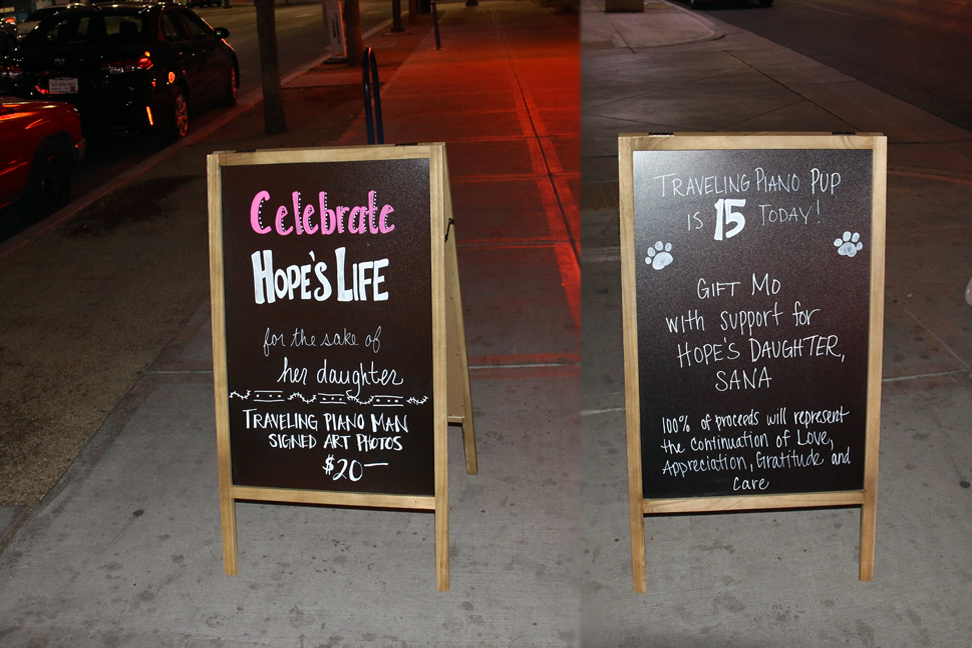 Celebrate
HOPE'S LIFE
for the sake of
her daughter
TRAVELING PIANO MAN
SIGNED ART PHOTOS
$20—
TRAVELING PIANO PUP
IS 15 TODAY!
GIFT MO
with support for
HOPE'S DAUGHTER,
SANA
100% of proceeds will represent
the continuation of Love,
Appreciation, Gratitude and
Care